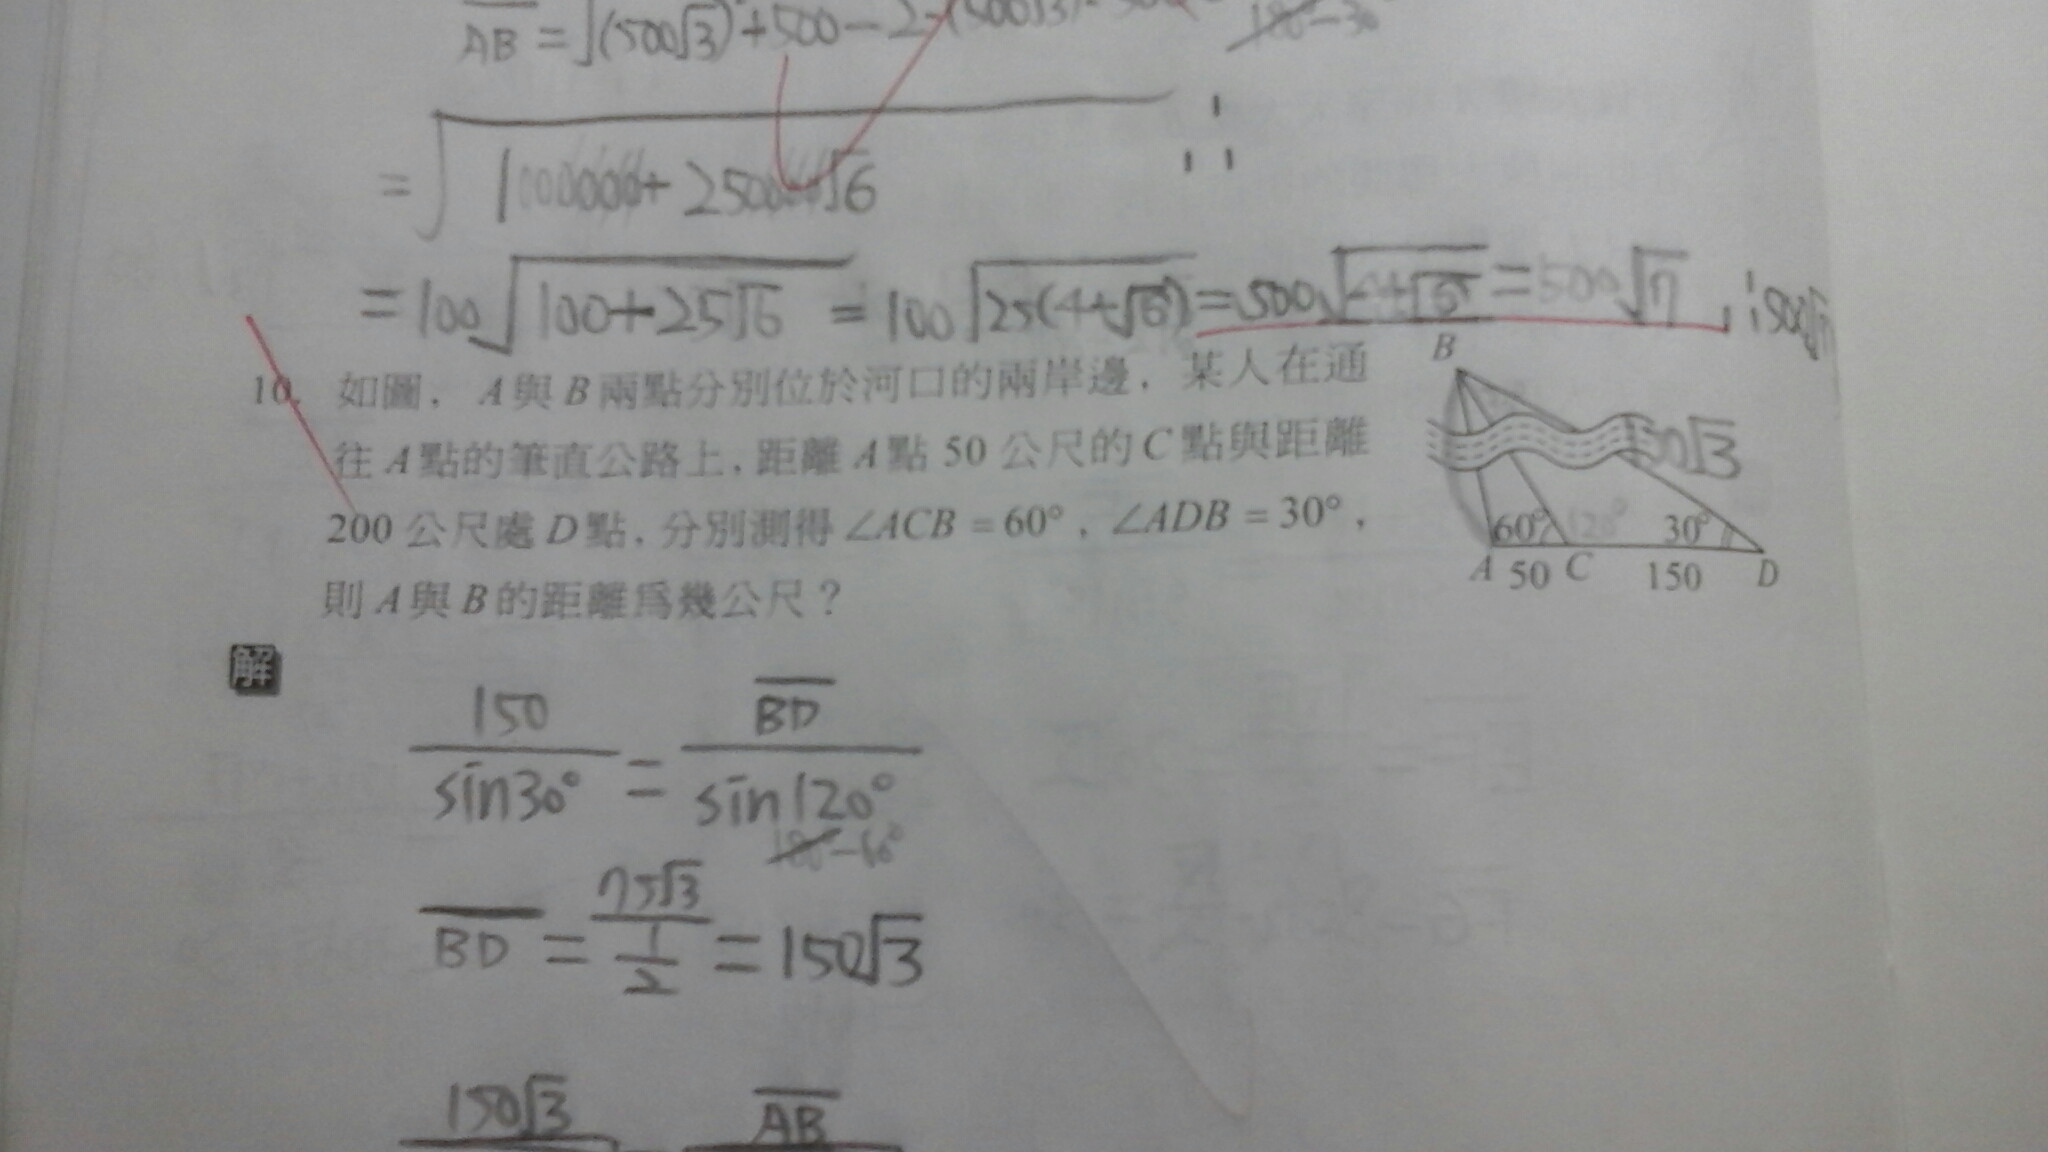 AB = √(500√3)²+500
= √1000000+250000√6
= 100√100+25√6 = 100√25(4+√6) = 500√4+√6 = 500√7
10. 如圖，A與B兩點分別位於河口的兩岸邊，某人在通
往A點的筆直公路上，距離A點50公尺的C點與距離
200公尺處D點，分別測得∠ACB=60°，∠ADB=30°，
則A與B的距離為幾公尺？
B
√3
60° 120° 30°
A 50 C 150 D
解
150/sin30° = BD/sin120°
180-60°
BD = 75√3/(1/2) = 150√3
150√3 AB